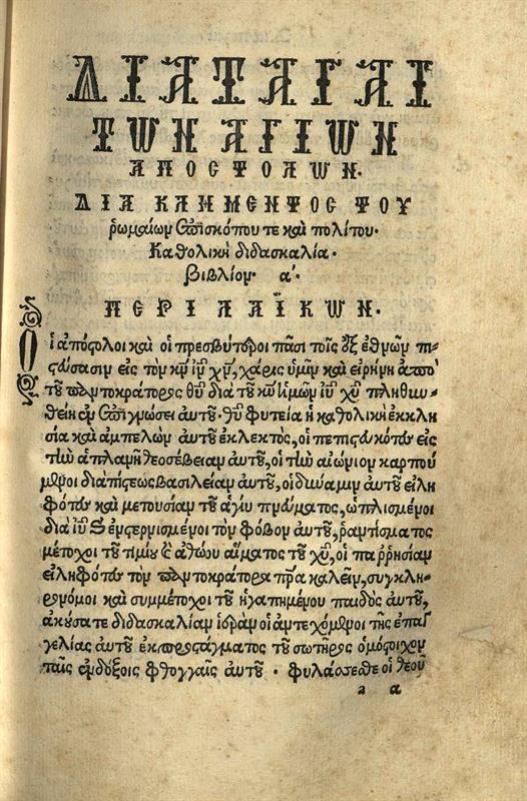 ΔΙΑΤΑΓΑΙ
ΤΩΝ ΑΓΙΩΝ
ΑΠΟΣΤΟΛΩΝ.
ΔΙΑ ΚΛΗΜΕΝΤΟΣ ΤΟΥ
ῥωμαίων ἐπισκόπου τε καὶ πολίτου.
Καθολικὴ διδασκαλία.
βιβλίον α΄.
ΠΕΡΙ ΛΑΪΚΩΝ.
Οἱ ἀπόστολοι καὶ οἱ πρεσβύτεροι πᾶσι τοῖς ἐξ ἐθνῶν πι-
στεύσασιν εἰς τὸν κν̄ ἰν̄ χν̄, χάρις ὑμῖν καὶ εἰρήνη ἀπὸ
τοῦ παντοκράτορος θῡ διὰ τοῦ κῡ ἡμῶν ἰῡ χῡ πληθυν-
θείη ἐν ἐπιγνώσει αὐτοῦ. θῡ φυτεία ἡ καθολικὴ ἐκκλη
σία καὶ ἀμπελὼν αὐτοῦ ἐκλεκτός, οἱ πεπιστευκότες εἰς
τὴν ἀπλανῆ θεοσέβειαν αὐτοῦ, οἱ τὴν αἰώνιον καρπού
μενοι διὰ πίστεως βασιλείαν αὐτοῦ, οἱ δύναμιν αὐτοῦ εἰλη
φότες καὶ μετουσίαν τοῦ ἁγίου πνεύματος, ὡπλισμένοι
διὰ ἰῡ καὶ ἐνεστερνισμένοι τὸν φόβον αὐτοῦ, ῥαντίσματος
μέτοχοι τοῦ τιμίου καὶ ἀθώου αἵματος τοῦ χῡ, οἱ παρρησίαν
εἰληφότες τὸν παντοκράτορα πρ̄α καλεῖν, συγκλη-
ρονόμοι καὶ συμμέτοχοι τοῦ ἠγαπημένου παιδὸς αὐτοῦ,
ἀκούσατε διδασκαλίαν ἱερὰν οἱ ἀντεχόμενοι τῆς ἐπαγ
γελίας αὐτοῦ ἐκ προστάγματος τοῦ σωτῆρος ὁμόστοιχον
ταῖς ἐνδόξοις φθογγαῖς αὐτοῦ. φυλάσσεσθε οἱ θεοῦ
a α